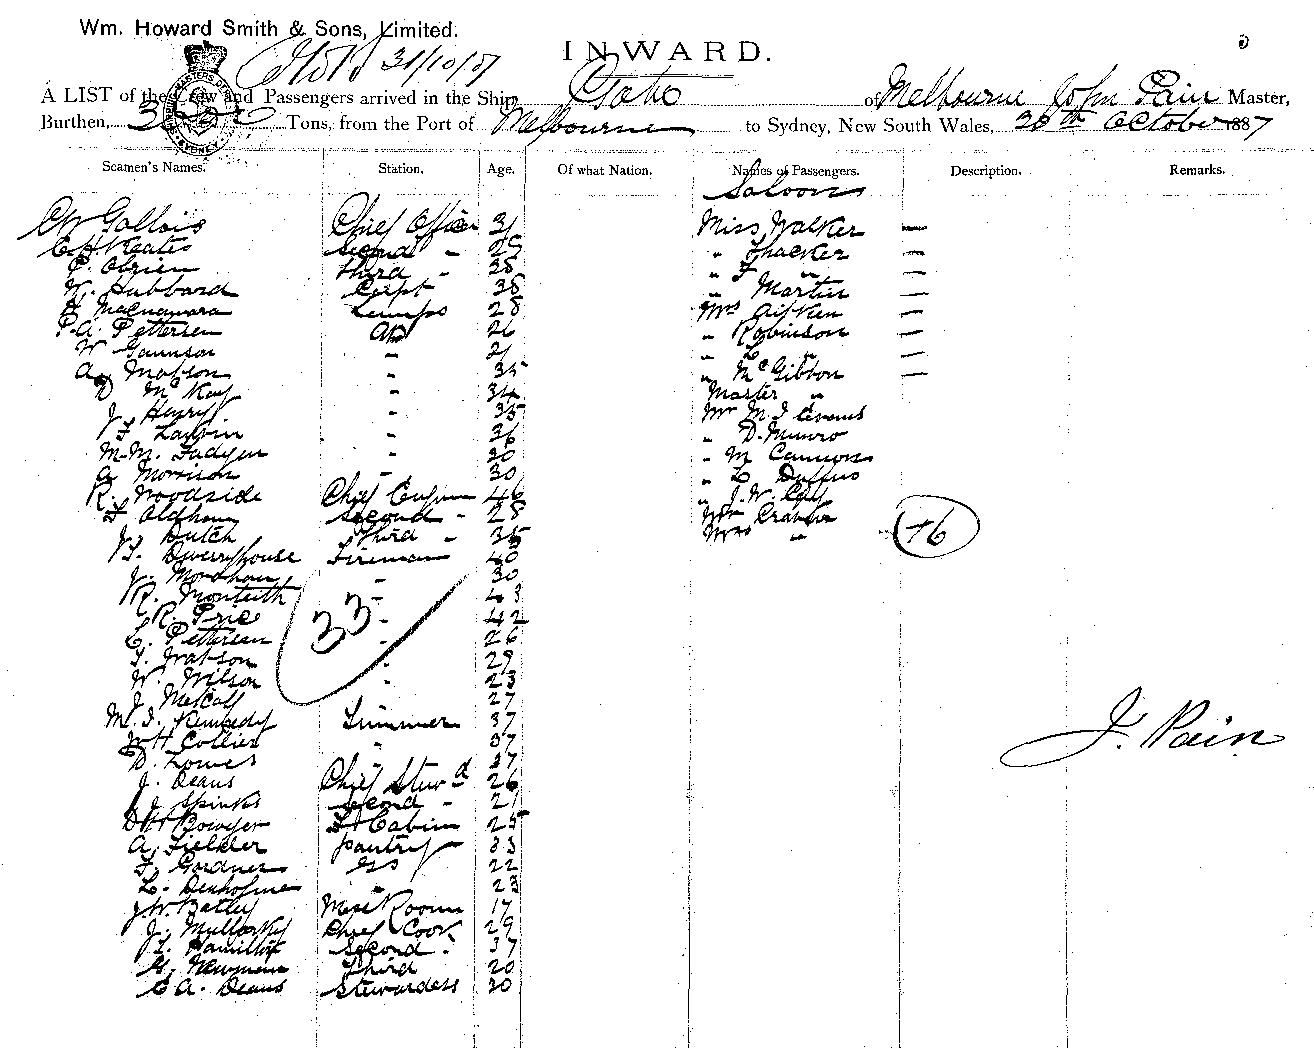 Wm. Howard Smith & Sons, Limited.
31/10/87
INWARD.
A LIST of the Crew and Passengers arrived in the Ship of Melbourne John Pain Master,
Burthen, Tons, from the Port of Melbourne to Sydney, New South Wales, 30th October 1887
Seamen's Names. Station. Age. Of what Nation. Names of Passengers. Description. Remarks.
Saloon
C W Gallois Chief Officer 31 Miss Walker —
C H Keates Second " 25 " Thacker —
P. Obrien Third " " " —
W. Hubbard 38 " Martin —
Macnamara Lamps 28 Mrs Aitken —
P. A. Pettersen AB 26 " Robinson —
W " " " —
A. Matson " 35 " McGibbon —
D McKay " 34 Master "
J. Henry " 35 Mr M. J Evans
" 36 " D. Munro
M. M. Fadyen " 30 " M Cannons
A Morrison " 30 " Duffus
R. Woodside Chief Engin 46 " J. W.
Oldham Second " 28 Mr
J. Dutch Third " 35 Mrs "
16
Dwerryhouse Fireman 40
J. " 30
R. Monteith " 43
R. Price " 42
L. Pettersen " 26
Watson " 29
W. Wilson " 23
J Metcalf 27
33
M. J. Kennedy Trimmer 37
W H Collier " 37
D. Lowes 37
J. Deans Chief Stewd 26
J Spinks Second " 21
D W Bowyer Cabin 25
A. Fielder Pantry 33
F. Gardner 22
L. Denholme "
J. W. Batley Mess Room 17
J. Chief Cook 29
Hamilton Second " 37
G. Newman Third 20
C A. Deans Stewardess 30
J. Pain